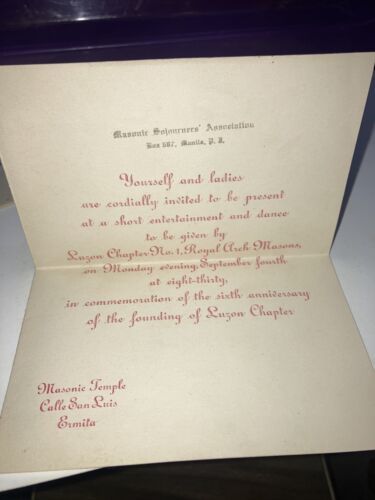 Masonic Sojourners' Association
Box 687, Manila, P. I.
Yourself and ladies
are cordially invited to be present
at a short entertainment and dance
to be given by
Luzon Chapter No. 1, Royal Arch Masons,
on Monday evening, September fourth
at eight-thirty,
in commemoration of the sixth anniversary
of the founding of Luzon Chapter
Masonic Temple
Calle San Luis
Ermita